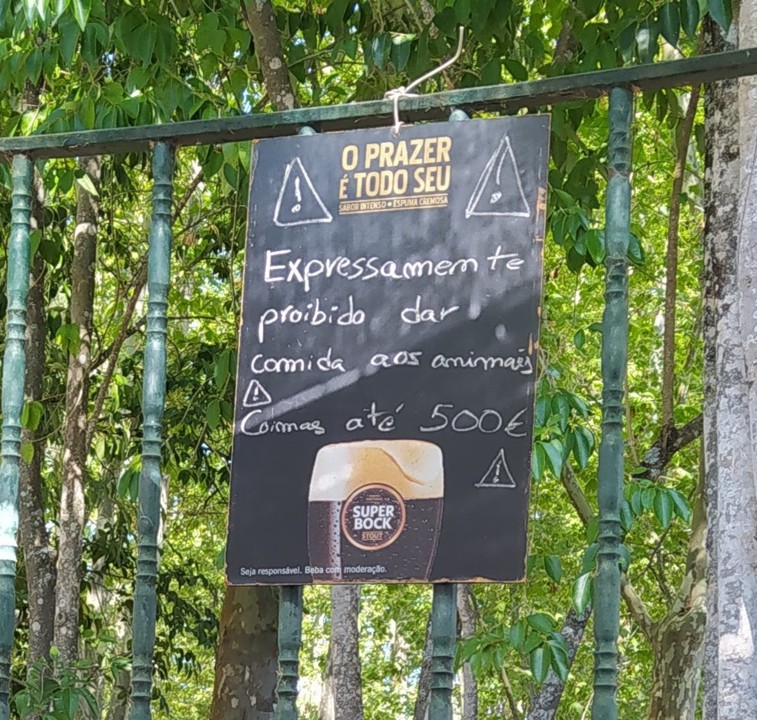 O PRAZER
É TODO SEU
SABOR INTENSO • ESPUMA CREMOSA
Expressamente
proibido dar
comida aos animais
Coimas até 500€
SUPER
BOCK
STOUT
Seja responsável. Beba com moderação.